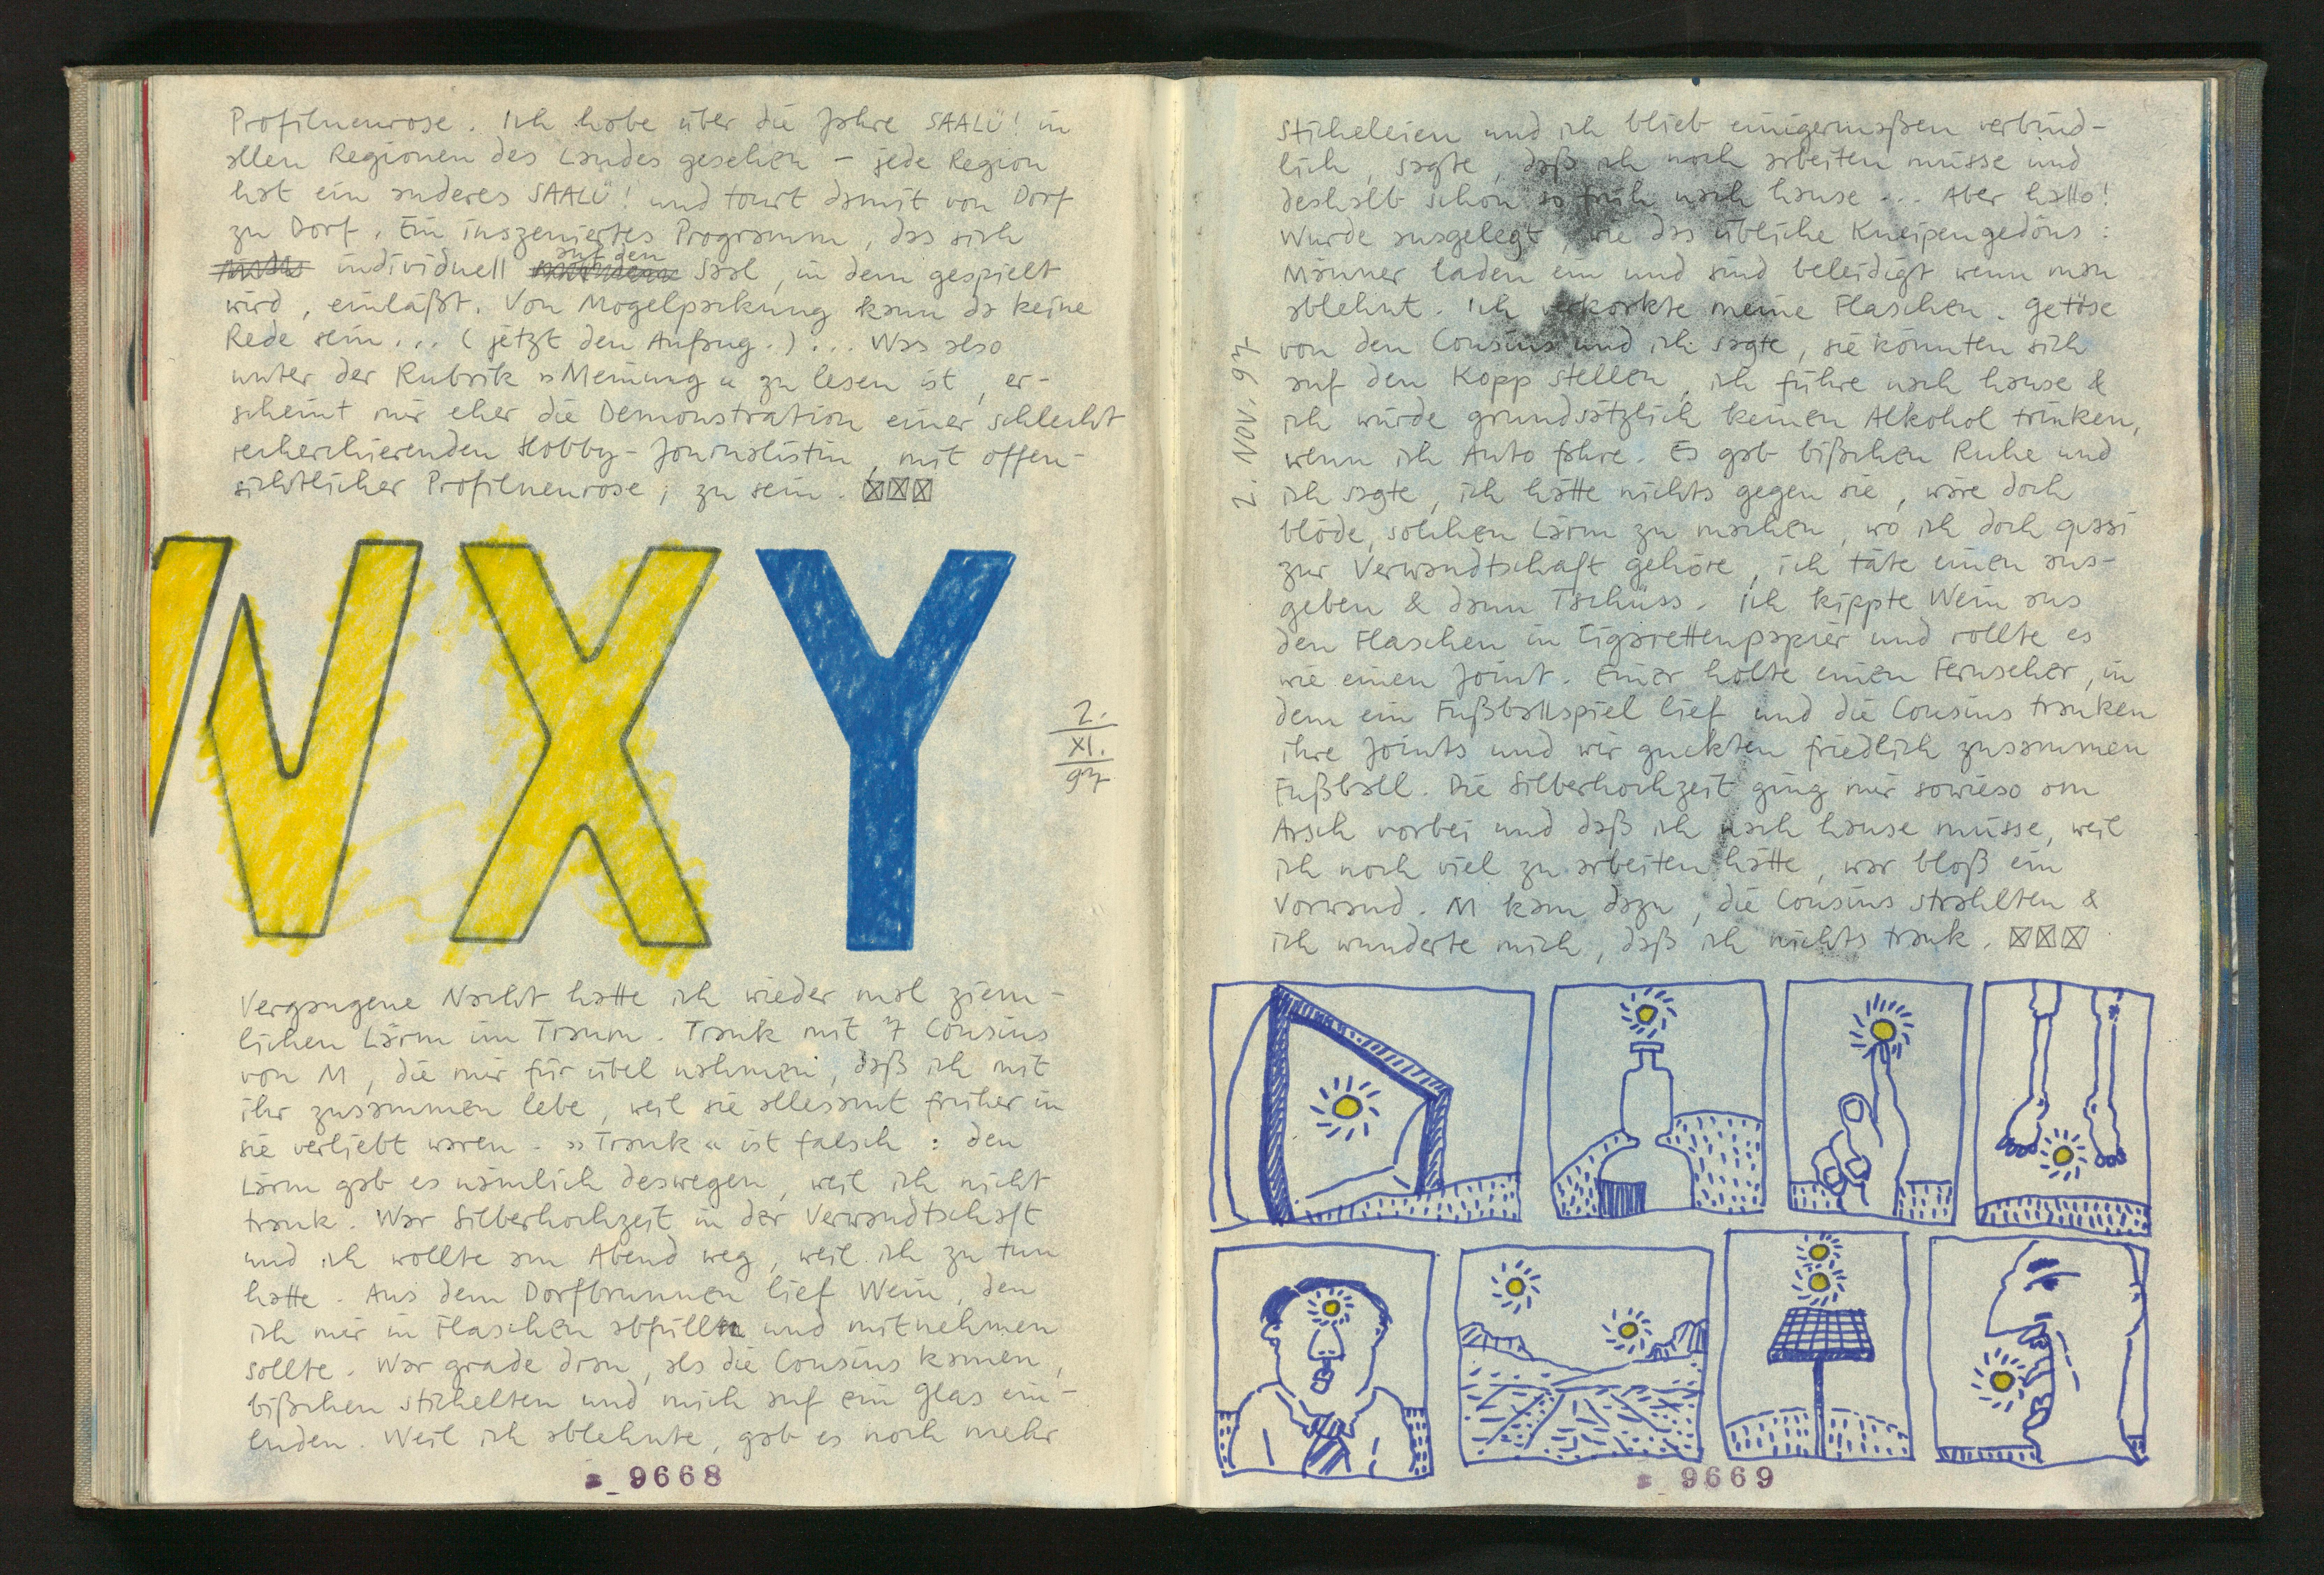 Profilneurose. Ich habe über die Jahre SAALÜ! in
allen Regionen des Landes gesehen – jede Region
hat ein anderes SAALÜ! und tourt damit von Dorf
zu Dorf. Ein inszeniertes Programm, das sich
individuell auf den Saal, in dem gespielt
wird, einläßt. Von Mogelpackung kann da keine
Rede sein... (jetzt den Anfang.)... Was also
unter der Rubrik »Meinung« zu lesen ist, er-
scheint mir eher die Demonstration einer schlecht
recherchierenden Hobby-Journalistin, mit offen-
sichtlicher Profilneurose, zu sein. ☒☒☒
WXY
2.
XI.
97
Vergangene Nacht hatte ich wieder mal ziem-
lichen Lärm im Traum. Trank mit 7 Cousins
von M, die mir für übel nahmen, daß ich mit
ihr zusammen lebe, weil sie allesamt früher in
sie verliebt waren. »Trank« ist falsch: den
Lärm gab es nämlich deswegen, weil ich nicht
trank. War Silberhochzeit in der Verwandtschaft
und ich wollte am Abend weg, weil ich zu tun
hatte. Aus dem Dorfbrunnen lief Wein, den
ich mir in Flaschen abfüllen und mitnehmen
sollte. War grade dran, als die Cousins kamen,
bißchen stichelten und mich auf ein Glas ein-
luden. Weil ich ablehnte, gab es noch mehr
9668
2. NOV. 97
Sticheleien und ich blieb einigermaßen verbind-
lich, sagte, daß ich noch arbeiten müsse und
deshalb schon so früh nach hause... Aber hallo!
Wurde ausgelegt, wie das übliche Kneipengedöns:
Männer laden ein und sind beleidigt wenn man
ablehnt. Ich verkorkte meine Flaschen. Getöse
von den Cousins und ich sagte, sie könnten sich
auf den Kopp stellen, ich führe nach hause &
ich würde grundsätzlich keinen Alkohol trinken,
wenn ich Auto fahre. Es gab bißchen Ruhe und
ich sagte, ich hätte nichts gegen sie, wäre doch
blöde, solchen Lärm zu machen, wo ich doch quasi
zur Verwandtschaft gehöre, ich täte einen aus-
geben & dann Tschüss. Ich kippte Wein aus
den Flaschen in Cigarettenpapier und rollte es
wie einen Joint. Einer holte einen Fernseher, in
dem ein Fußballspiel lief und die Cousins tranken
ihre Joints und wir guckten friedlich zusammen
Fußball. Die Silberhochzeit ging mir sowieso am
Arsch vorbei und daß ich nach hause müsse, weil
ich noch viel zu arbeiten hätte, war bloß ein
Vorwand. M kam dazu, die Cousins strahlten &
ich wunderte mich, daß ich nichts trank. ☒☒☒
9669